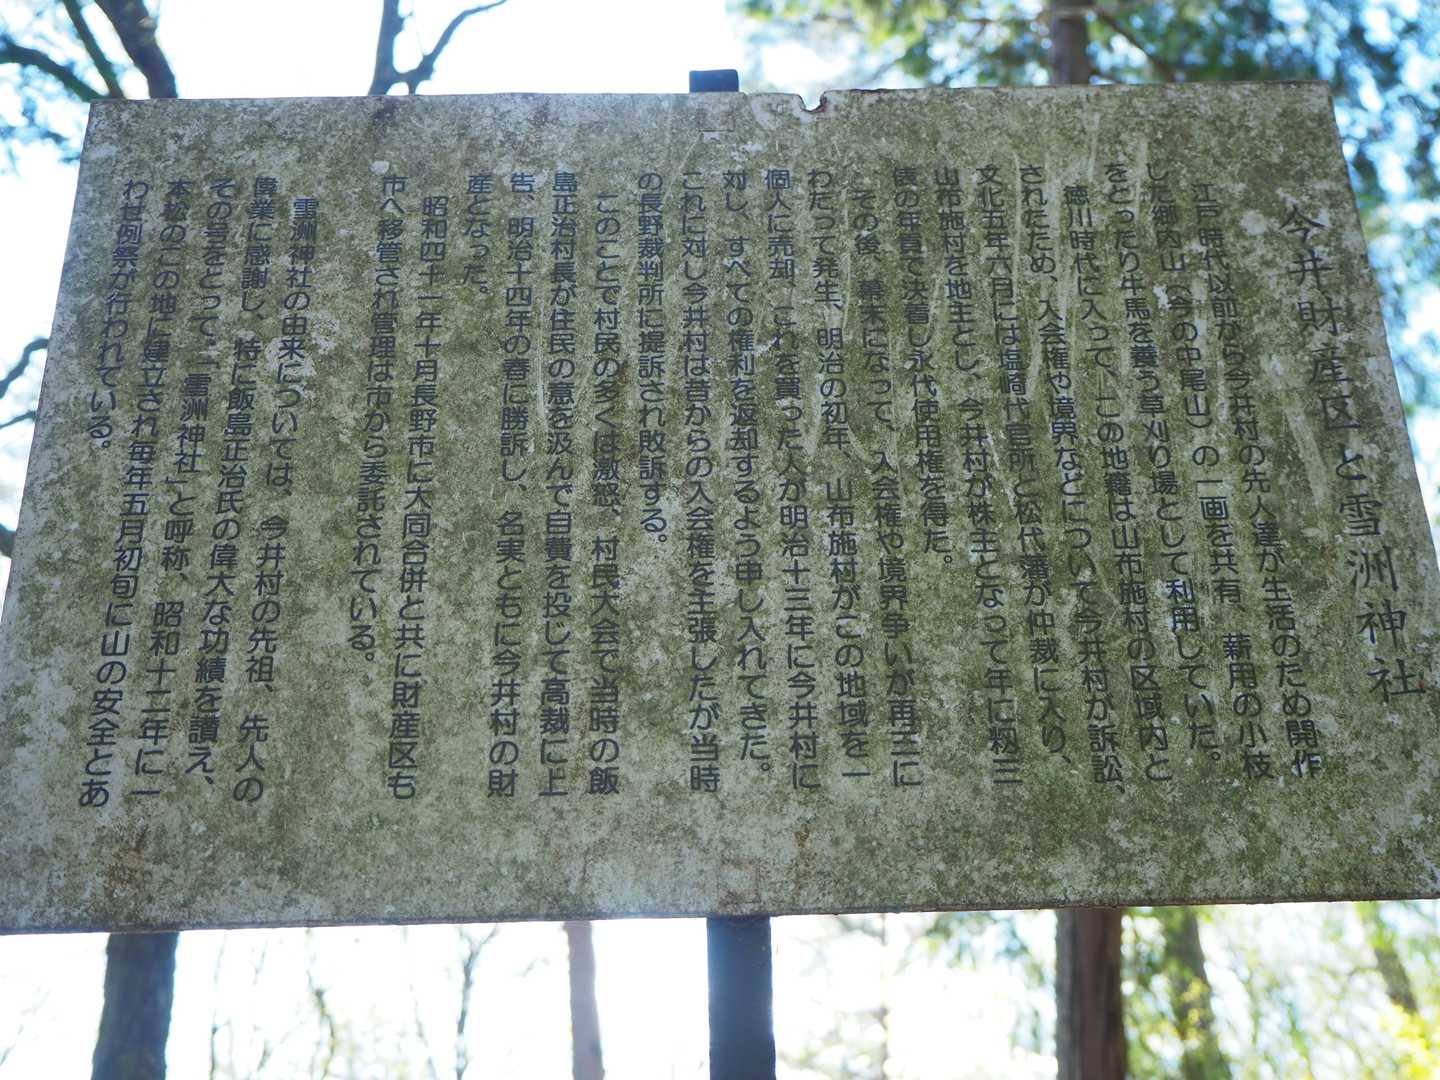 今井財産区と雪洲神社
江戸時代以前から今井村の先人達が生活のため開作
した郷内山（今の中尾山）の一画を共有、薪用の小枝
をとったり牛馬を養う草刈り場として利用していた。
徳川時代に入って、この地籍は山布施村の区域内と
されたため、入会権や境界などについて今井村が訴訟、
文化五年六月には塩崎代官所と松代藩が仲裁に入り、
山布施村を地主とし、今井村が株主となって年に籾三
俵の年貢で決着し永代使用権を得た。
その後、幕末になって、入会権や境界争いが再三に
わたって発生、明治の初年、山布施村がこの地域を一
個人に売却、これを買った人が明治十三年に今井村に
対し、すべての権利を返却するよう申し入れてきた。
これに対し今井村は昔からの入会権を主張したが当時
の長野裁判所に提訴され敗訴する。
このことで村民の多くは激怒、村民大会で当時の飯
島正治村長が住民の意を汲んで自費を投じて高裁に上
告、明治十四年の春に勝訴し、名実ともに今井村の財
産となった。
昭和四十一年十月長野市に大同合併と共に財産区も
市へ移管され管理は市から委託されている。
雪洲神社の由来については、今井村の先祖、先人の
偉業に感謝し、特に飯島正治氏の偉大な功績を讃え、
その号をとって、「雪洲神社」と呼称、昭和十二年に一
本松のこの地に建立され毎年五月初旬に山の安全とあ
わせ例祭が行われている。